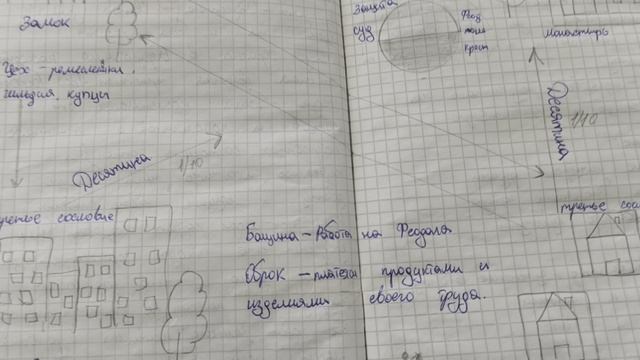 Замок
Цех - ремесленники,
гильдия купцы
Десятина 1/10
третье сословие
защита
суд
Феод
поля
крест
монастырь
Десятина 1/10
третье сос
Бащина - Работа на Феодала
Оброк - платеж продуктами и
изделиями своего труда.